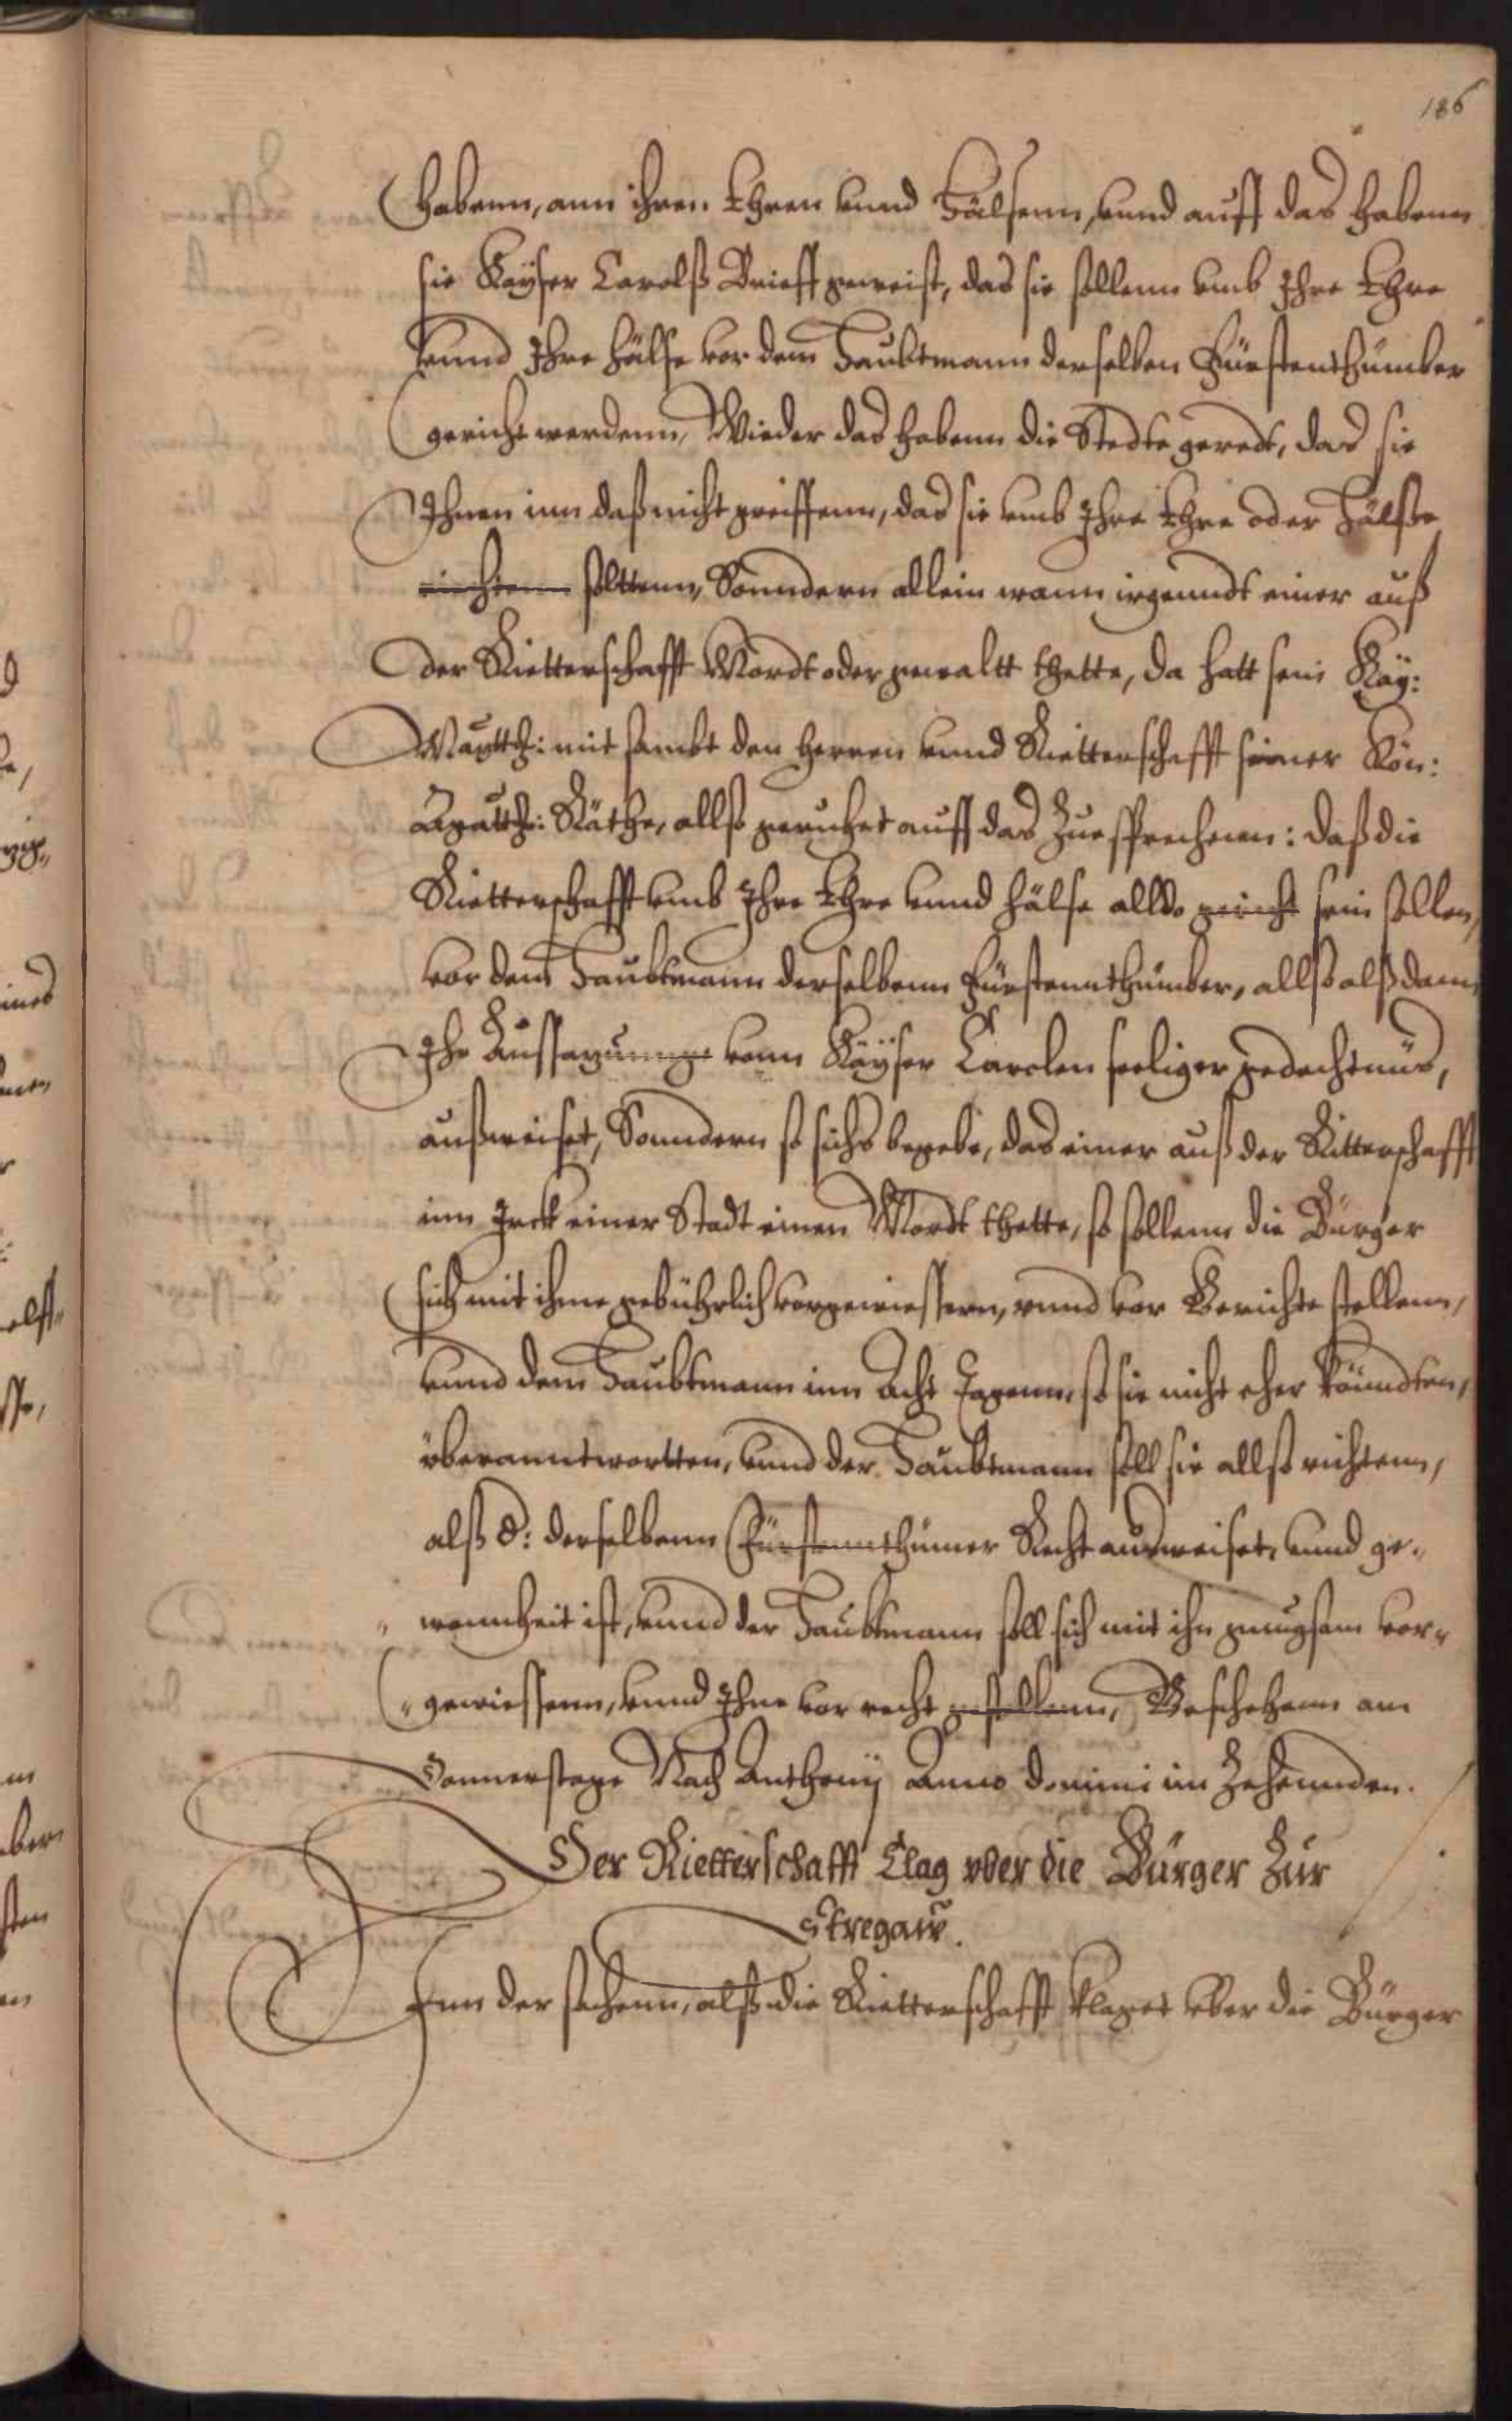 186
habenn, ann ihren Ehren vnnd Hälsenn, vnnd auff das habenn
sie Kayser Carolß Brieff geweist, das sie sollenn vmb Ihre Ehre
vnnd Ihre hälse vor dem Haubtmann derselben Fürstenthümber
gericht werdenn, Wieder das habenn die Stedte geredt, das sie
Ihnen inn daß nicht greiffenn, das sie vmb Ihre Ehre oder Hälße
richtenn soltenn, Sonndern allein wann irgenndt einer auß
der Rietterschafft Mordt oder gewaltt thette, da hatt sein Kay:
Maytth: mit sambt den herren vnnd Rietterschafft seiner Kön:
Mgatth: Räthe, allß geruhet auff das Zuesprechenn: daß die
Rietterschafft vmb Ihre Ehre vnnd hälse alldo gericht sein sollen,
vor dem Haubtmann derselbenn Fürstennthümber, allß alß dann
Ihr Aussazunnge vonn Kayser Carolen seeliger gedechtnüs,
außweiset, Sonndern so sichs begebe, das einer auß der Ritterschafft
inn einer Stadt einen Mordt thette, so sollenn die Bürger
sich mit ihme gebührlich vorgewiessern, vnnd vor Gerichte stellenn,
vnnd dem Haubtmann inn Acht Tagenn, so sie nicht eher könndten,
überanntwortten, vnnd der Haubtmann soll sie allß richtenn,
alß d: derselbenn Fürstennthümer Recht ausweiset, vnnd ge„
„ wonnheit ist, vnnd der Haubtmann soll sich mit ihn gnugsam vor„
„ gewiessenn, vnnd Ihne vor recht gestellenn, Geschehenn am
Donnerstage Nach Anthonij Anno domini im Zehenden.
Der Rietterschafft Clag vber die Bürger Zur
Stregaw.
Inn der sachenn, alß die Rietterschafft klaget vber die Bürger